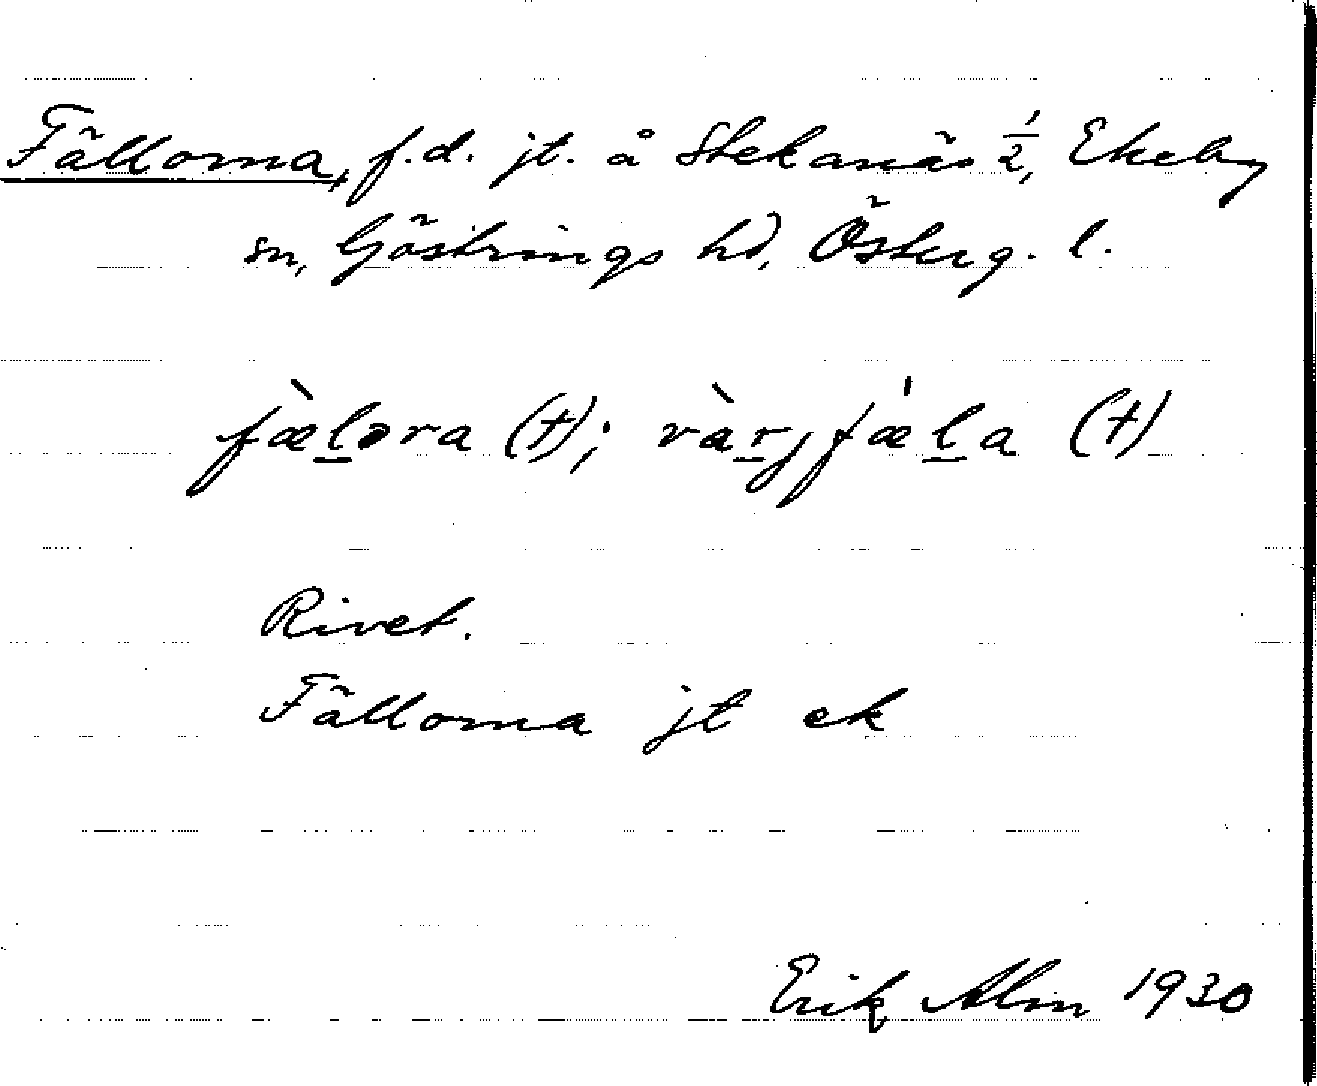 Fällorna, f.d. jt. å Stekanäs 1/2, Ekeby
sn, Göstrings hd, Österg. l.
fæ̀l̲ɔra (†); và̀r̲jfæ̍l̲a (†)
Rivet.
Fällorna jt ek
Erik Alm 1930